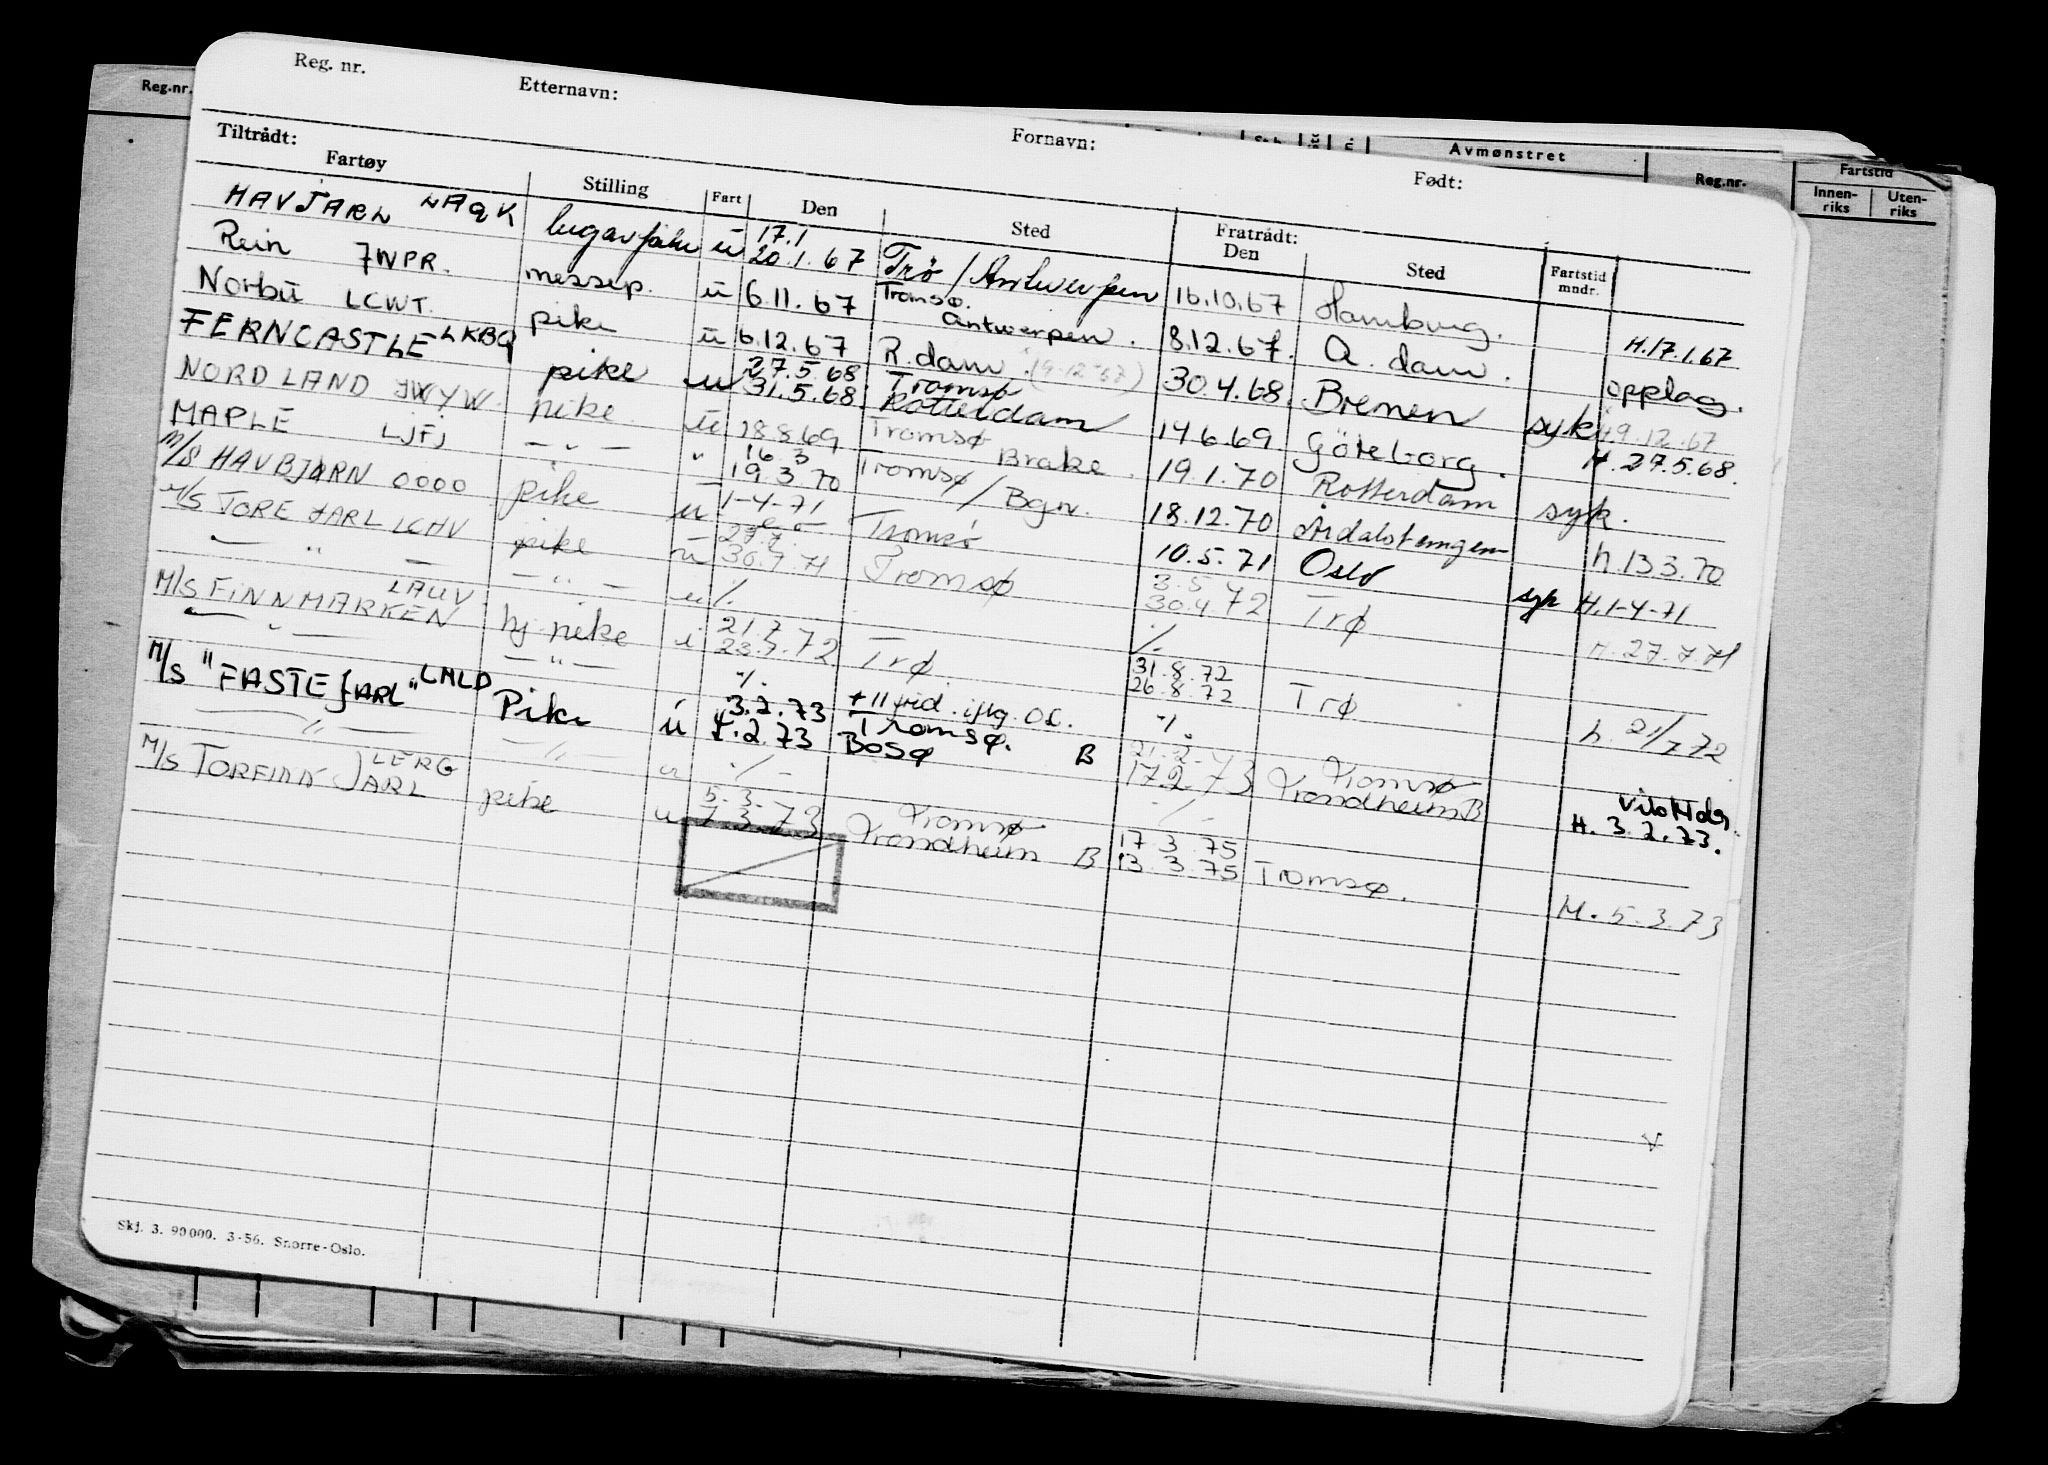 Reg. nr. Etternavn: Fornavn: Født:
Reg.nr. Avmønstret Reg.nr. Fartstid
Innen-riks Uten-riks
Tiltrådt: Fratrådt:
Fartøy Stilling Fart Den Sted Den Sted Fartstid mndr.
HAVJARL LAQK lugarpike u 17.1 20.1.67 Trø / Antwerpen 16.10.67 Hamburg. H.17.1.67
Rein JWPR. messep. u 6.11.67 Tromsø. Antwerpen. 8.12.67. A.dam. opplag.
Norbu LCWT. pike u 6.12.67 R.dam. (9-12-67) 30.4.68. Bremen syk 19.12.67
FERNCASTLE LKBQ pike u 27.5.68 31.5.68 Tromsø Rotterdam 14.6.69 Göteborg. H.27.5.68.
NORDLAND JWYW. pike u 18.8.69 Tromsø Brake. 19.1.70 Rotterdam syk.
MAPLE LJFJ — " — " 16.3 19.3.70 Tromsø / Bgn. 18.12.70 Årdalstangen h.13.3.70
M/S HAVBJØRN 0000 pike u 1-4-71 Tromsø 10.5.71 Oslo syk H.1-4-71
M/S TORE JARL LCHV pike u 27.7. 30.7.71 Tromsø 3.5.72 30.4.72 Trø H.27.7.71
— " — — " — u ./. ./.
M/S FINNMARKEN LAUV hj. pike i 21.7. 23.7.72 Trø. 31.8.72 26.8.72 Trø h.21/7 72
— " — — " — ./. ./.
M/S "FASTE JARL" LMLD Pike u 3.2.73 7.2.73 Tromsø. Bosø B 21.2.73 17.2.73 Tromsø Trondheim B H.3.2.73.
— " — — " — u ./. ./.
M/S TORFINN JARL LERG pike u 5.3. 7.3.73 Tromsø Trondheim B 17.3.75 13.3.75 Tromsø. H.5.3.73
V
Skj. 3. 90000. 3-56. Snorre-Oslo.